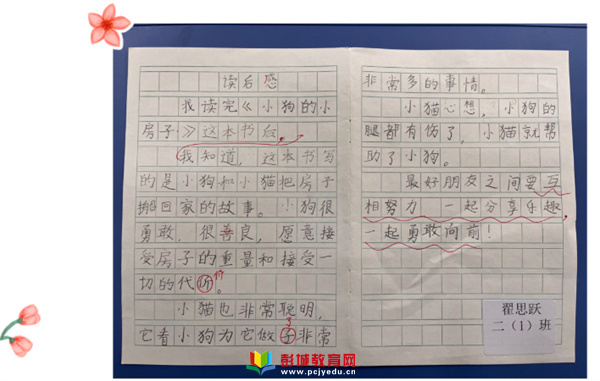 读后感
我读完《小狗的小
房子》这本书后,
我知道,这本书写
的是小狗和小猫把房子
搬回家的故事。小狗很
勇敢,很善良,愿意接
受房子的重量和接受一
切的代价。
小猫也非常聪明,
它看小狗为它做了非常
非常多的事情。
小猫心想,小狗的
腿都有伤了,小猫就帮
助了小狗。
最好朋友之间要互
相努力 一起分享乐趣,
一起勇敢向前!
翟思跃
二(1)班
彭城教育网
www.pcjyedu.cn